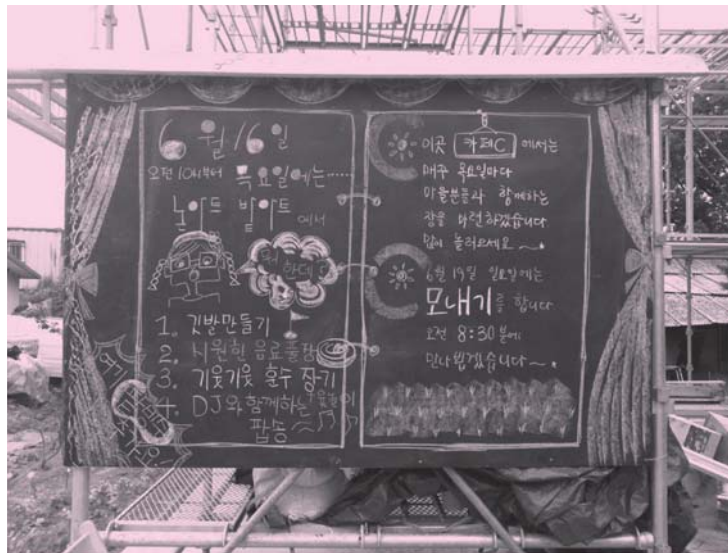 6월 16일
오전 10시부터 목요일에는......
논아트 밭아트 에서
뭐 한데?
1. 깃발만들기
2. 시원한 음료
3. 기웃기웃 훈수 장기
4. DJ와 함께하는
팝송~
이곳 카페C 에서는
매주 목요일마다
마을분들과 함께하는
장을 마련하겠습니다
많이 놀러오세요~
6월 19일 일요일에는
모내기를 합니다
오전 8:30분에
만나뵙겠습니다~